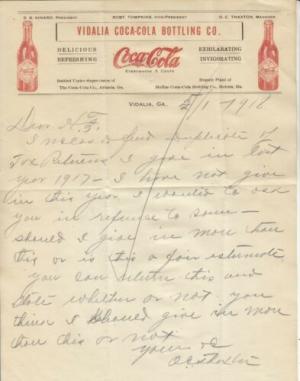 D. B. , PRESIDENT ROBT. TOMPKINS, VICE-PRESIDENT O. C. THAXTON, MANAGER
VIDALIA COCA-COLA BOTTLING CO.
DELICIOUS
REFRESHING
Coca-Cola
EVERYWHERE 5 CENTS
EXHILARATING
INVIGORATING
Bottled Under Supervision of
The Coca-Cola Co., Atlanta, Ga.
Coca-Cola Bottling Co.
VIDALIA, GA. 5/1 1918
Dear
I inclose find duplicate of
Tax Returns I gave in last
year 1917 - I have not given
in this year I wanted to ask
you in refrense to some -
should I give in more than
this or is this a fair estimate,
you can return this and
state whether or not you
think I should give in more
than this or not
yours
O C Thaxton